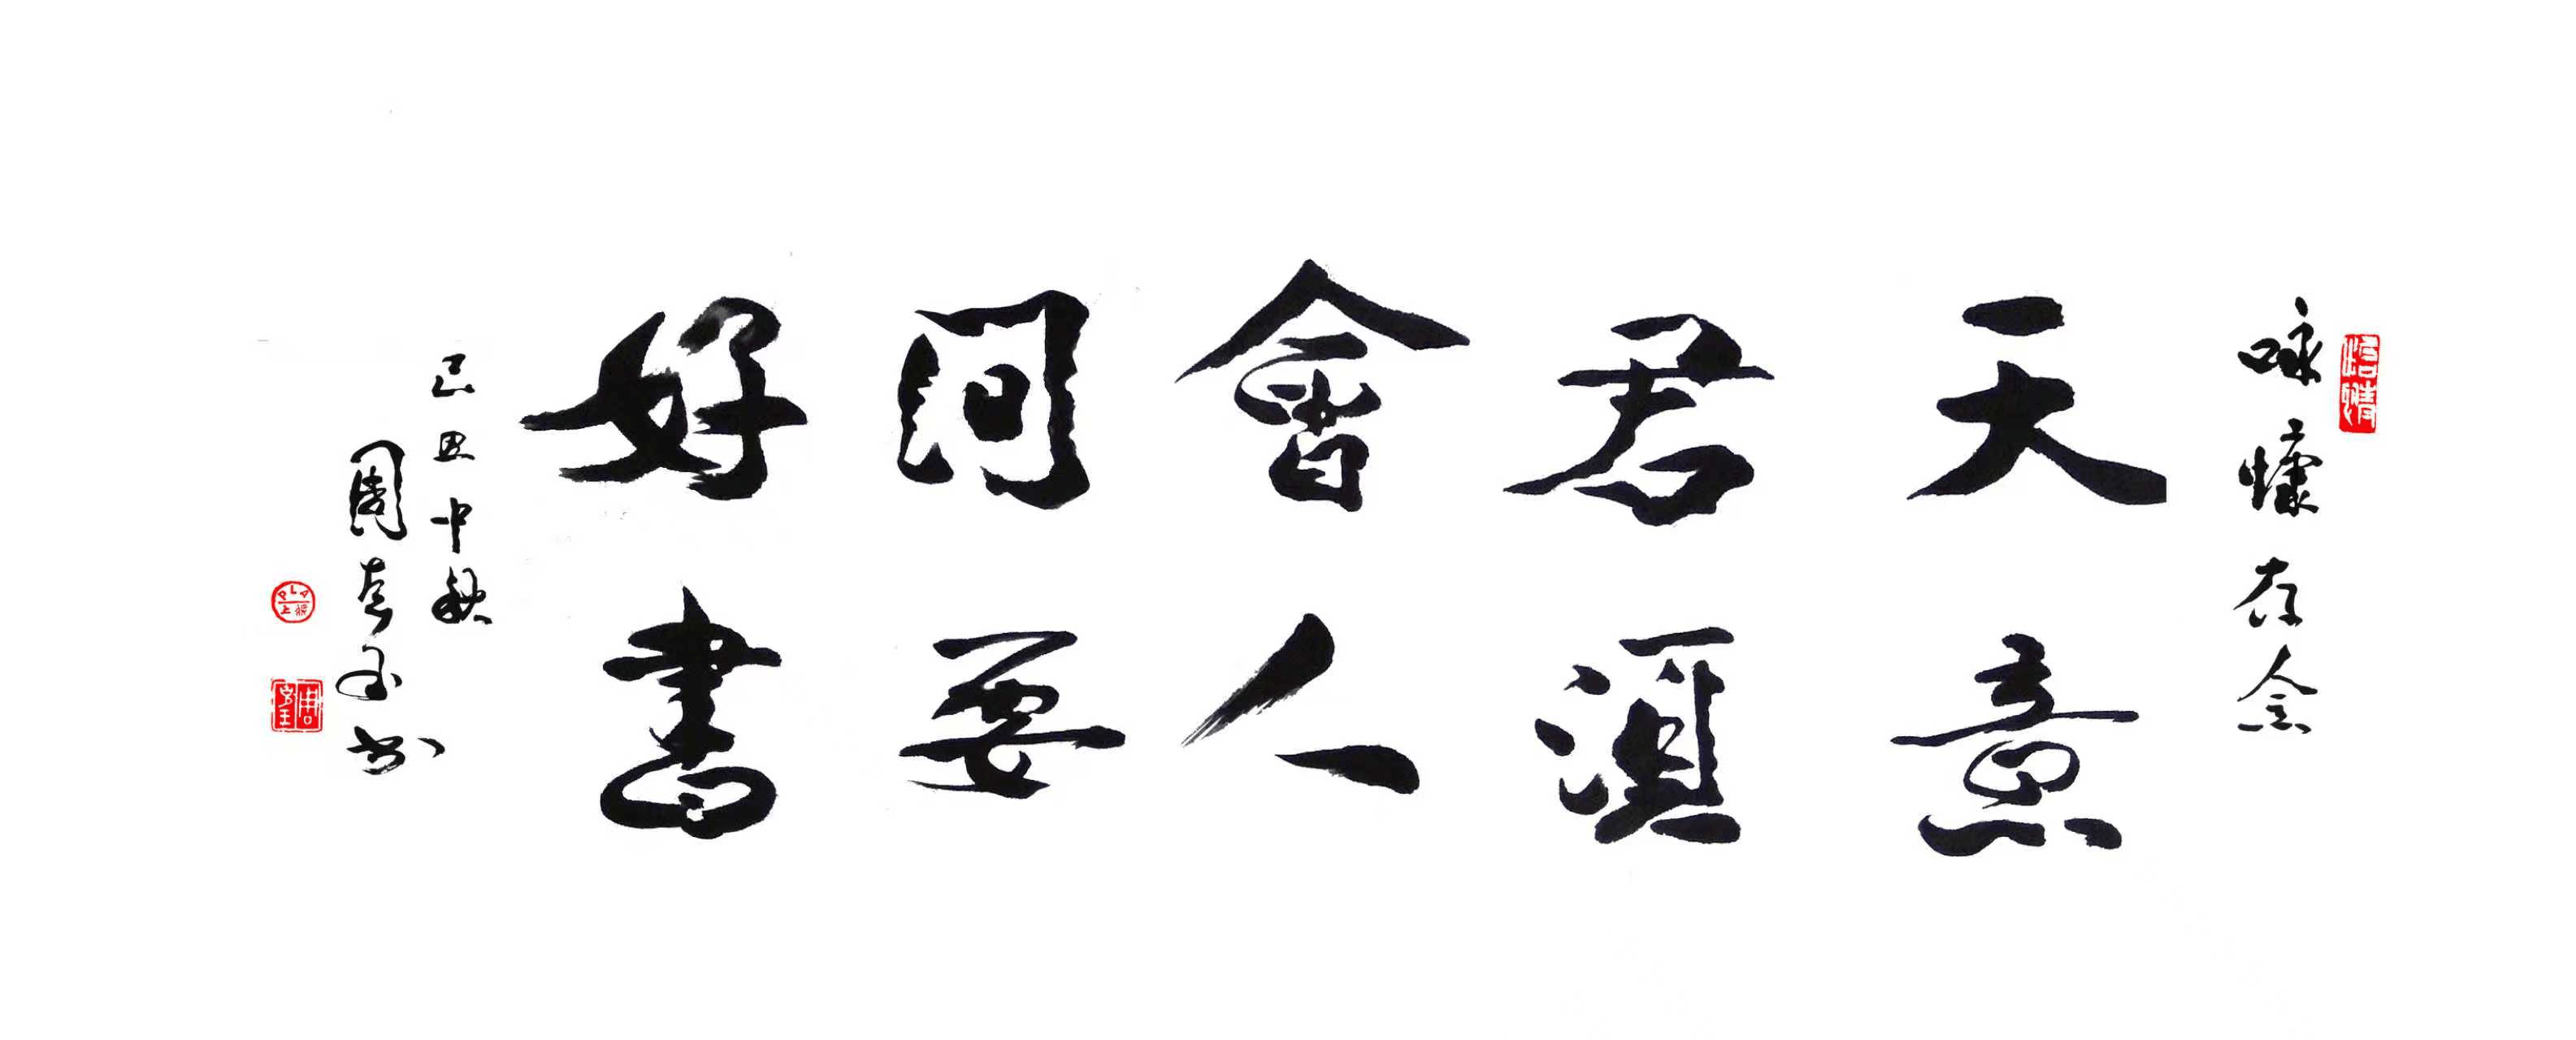 咏慷存念
天意
君須
會人
間要
好書
己丑中秋
周克玉书